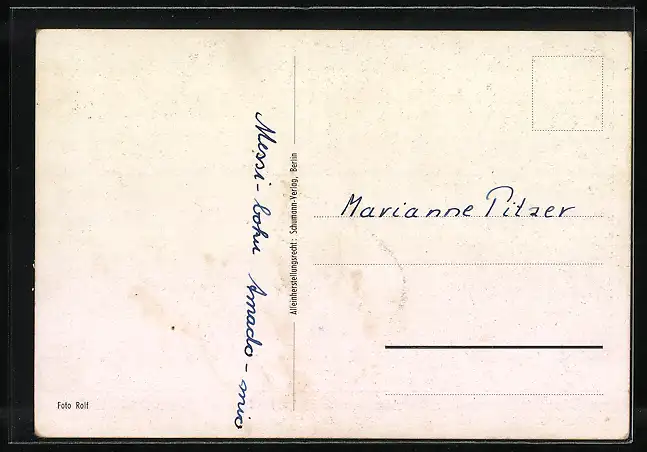 Messi-bohu Amado-mio
Alleinherstellungsrecht: Schumann-Verlag, Berlin
Marianne Pitzer
Foto Rolf